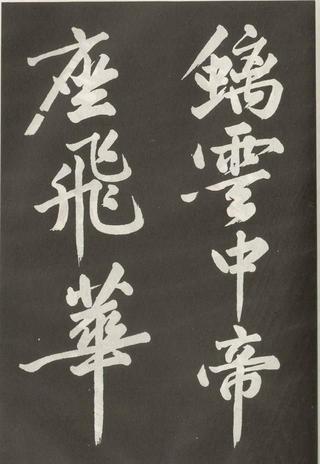 螭雲中帝
座飛華